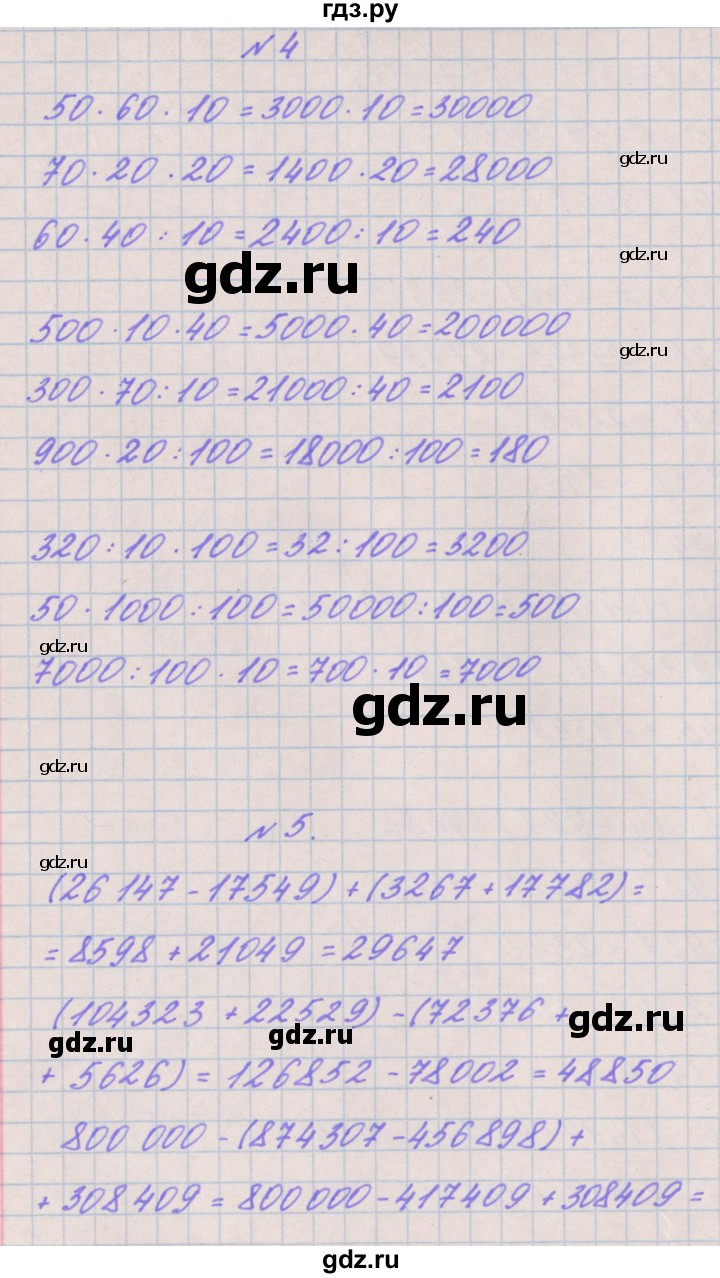 гдз.ру
№ 4
50 · 60 · 10 = 3000 · 10 = 30000
70 · 20 · 20 = 1400 · 20 = 28000
gdz.ru
60 · 40 : 10 = 2400 : 10 = 240
gdz.ru
gdz.ru
500 · 10 · 40 = 5000 · 40 = 200000
gdz.ru
300 · 70 : 10 = 21000 : 40 = 2100
900 · 20 : 100 = 18000 : 100 = 180
320 : 10 · 100 = 32 : 100 = 3200
50 · 1000 : 100 = 50000 : 100 = 500
gdz.ru
7000 : 100 · 10 = 700 · 10 = 7000
gdz.ru
gdz.ru
№ 5.
gdz.ru
(26 147 - 17549) + (3267 + 17782) =
= 8598 + 21049 = 29647
(104323 + 22529) - (72376 +
gdz.ru
gdz.ru
gdz.ru
+ 5626) = 126852 - 78002 = 48850
800 000 - (874307 - 456898) +
+ 308 409 = 800 000 - 417409 + 308409 =
gdz.ru